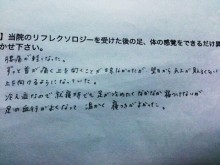 】当院のリフレクソロジーを受けた後の足、体の感覚をできるだけ詳
かせ下さい。
腰痛が軽くなった。
ずっと首が痛く上を向くことが出来なかったが、
上を向けるようになっていた。
冷え症なので就寝時でも足が冷めたくなかなか寝つけないが
足の血行がよくなって 温かく 寝つきがよかった。